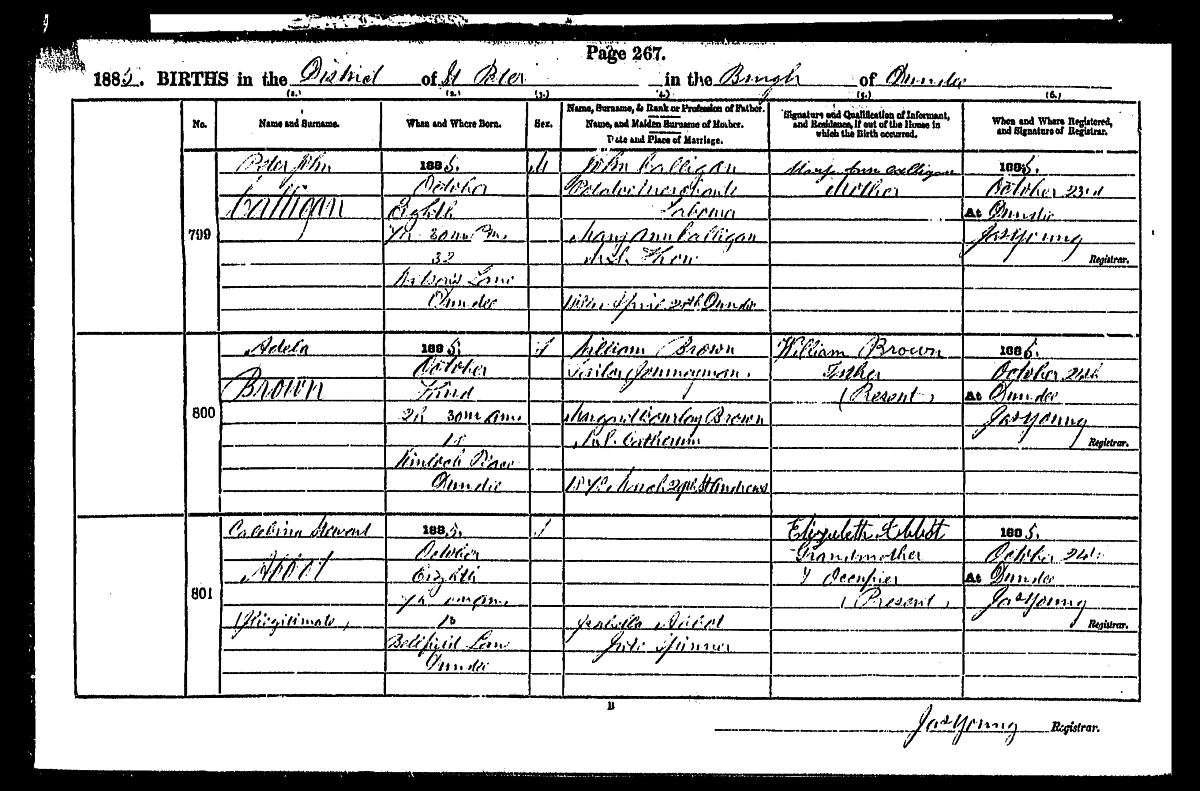 Page 267.
1885. BIRTHS in the District of St Peter in the Burgh of Dundee
(1.) (2.) (3.) (4.) (5.) (6.)
No.
Name and Surname.
When and Where Born.
Sex.
Name, Surname, & Rank or Profession of Father.
Name, and Maiden Surname of Mother.
Date and Place of Marriage.
Signature and Qualification of Informant,
and Residence, if out of the House in
which the Birth occurred.
When and Where Registered,
and Signature of Registrar.
799
Peter John
Calligan
1885.
October
Eighth
30m P.m.
32
Watson's Lane
Dundee
M
John Calligan
Merchants
Labourer
Mary Ann Calligan
M.S. Thow
April 20th Dundee
Mary Ann Calligan
Mother
1885.
October 23rd
At Dundee
Jas Young
Registrar.
800
Adela
Brown
1885.
October
Third
2h 30m am.
18
Kinloch Place
Dundee
F
William Brown
Journeyman.
Margaret Gourlay Brown
M.S.
March St Andrews
William Brown
Father
(Present)
1885.
October 24th
At Dundee
Jas Young
Registrar.
801
Stewart
Abbot
(Illegitimate)
1885.
October
Eighth
am.
Bellfield Lane
Dundee
F
Isabella Abbot
Jute Spinner
Elizabeth Abbot
Grandmother
& Occupier
(Present)
1885.
October 24th
At Dundee
Jas Young
Registrar.
B
Jas Young Registrar.